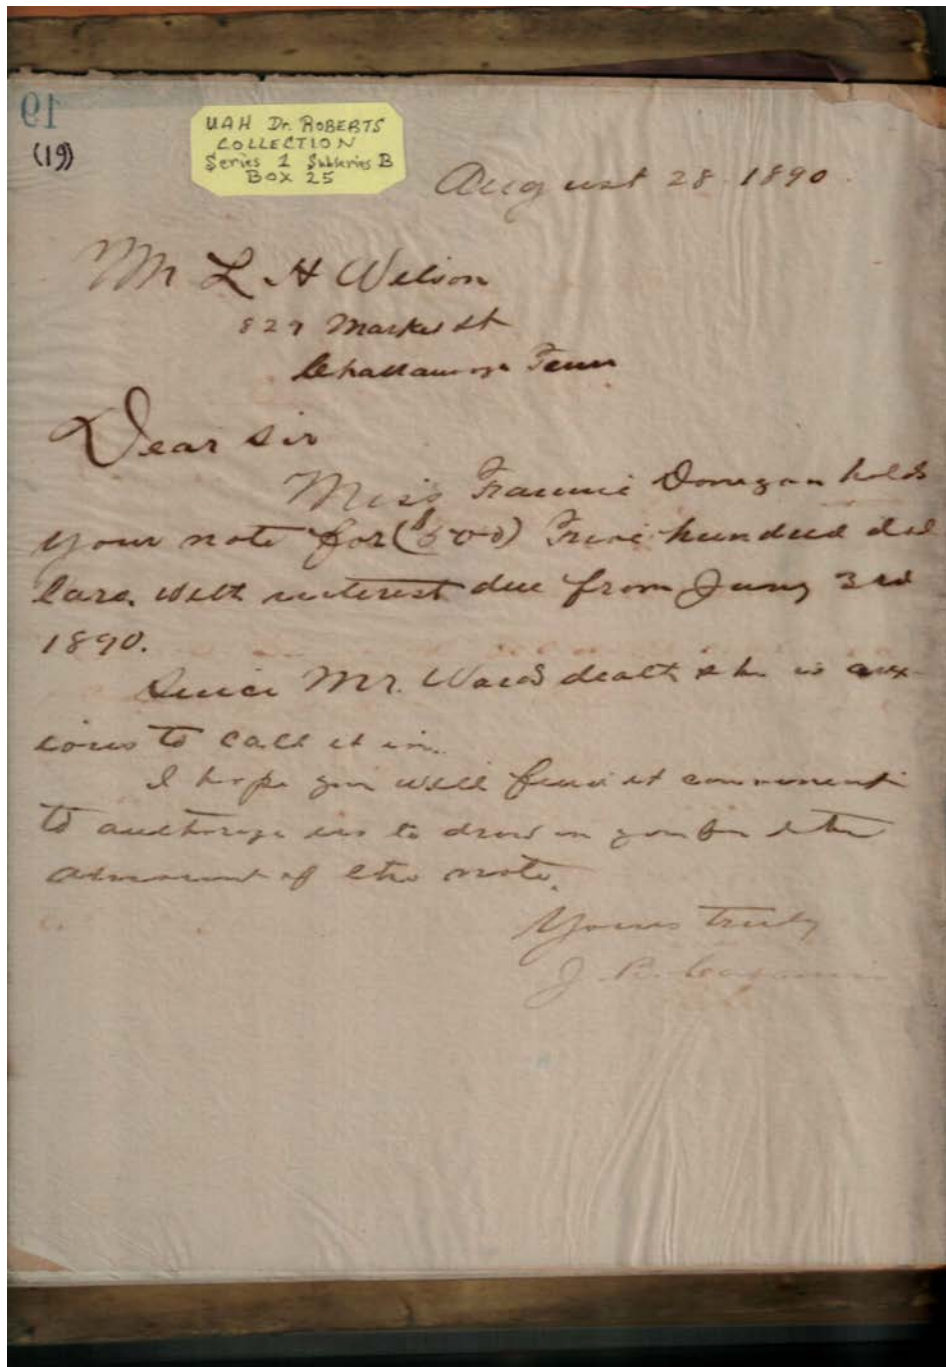 19
(19)
UAH Dr. ROBERTS
COLLECTION
Series 1 Subseries B
BOX 25
August 28. 1890.
Mr L H Wilson
829 Market St
Chattanooga Tenn
Dear Sir
Miss Fannie Donegan holds
your note for ($500) Five hundred dol
lars. with interest due from Jany 3rd
1890.
Since Mr. Wards death she is anx-
ious to call it in.
I hope you will find it convenient
to authorize us to draw on you for the
ammount of the note.
Yours truly
J. B.